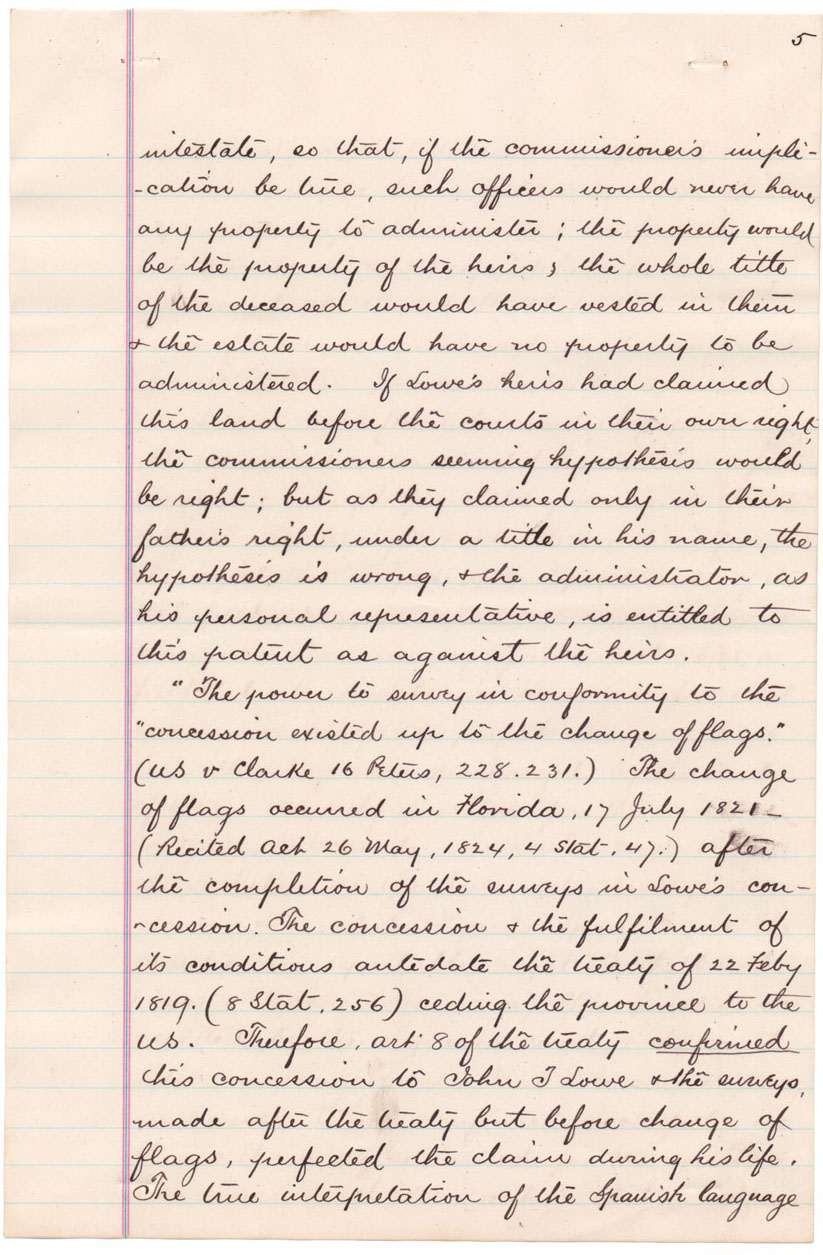 5
intestate, so that, if the commissioner's impli-
-cation be true, such officers would never have
any property to administer; the property would
be the property of the heirs; the whole title
of the deceased would have vested in them
& the estate would have no property to be
administered. If Lowe's heris had claimed
this land before the courts in their own right,
the commissioners seeming hypothesis would
be right; but as they claimed only in their
father's right, under a title in his name, the
hypothesis is wrong, & the administrator, as
his personal representative, is entitled to
this patent as against the heirs.
"The power to survey in conformity to the
"concession existed up to the change of flags."
(US v Clarke 16 Peters, 228.231.) The change
of flags occurred in Florida, 17 July 1821-
(Recited Act 26 May, 1824, 4 Stat, 47.) after
the completion of the surveys in Lowe's con-
-cession. The concession & the fulfilment of
its conditions antedate the treaty of 22 Feby
1819. (8 Stat, 256) ceding the province to the
US. Therefore, art 8 of the treaty confirmed
this concession to John T Lowe & the surveys,
made after the treaty but before change of
flags, perfected the claim during his life.
The true interpretation of the Spanish language